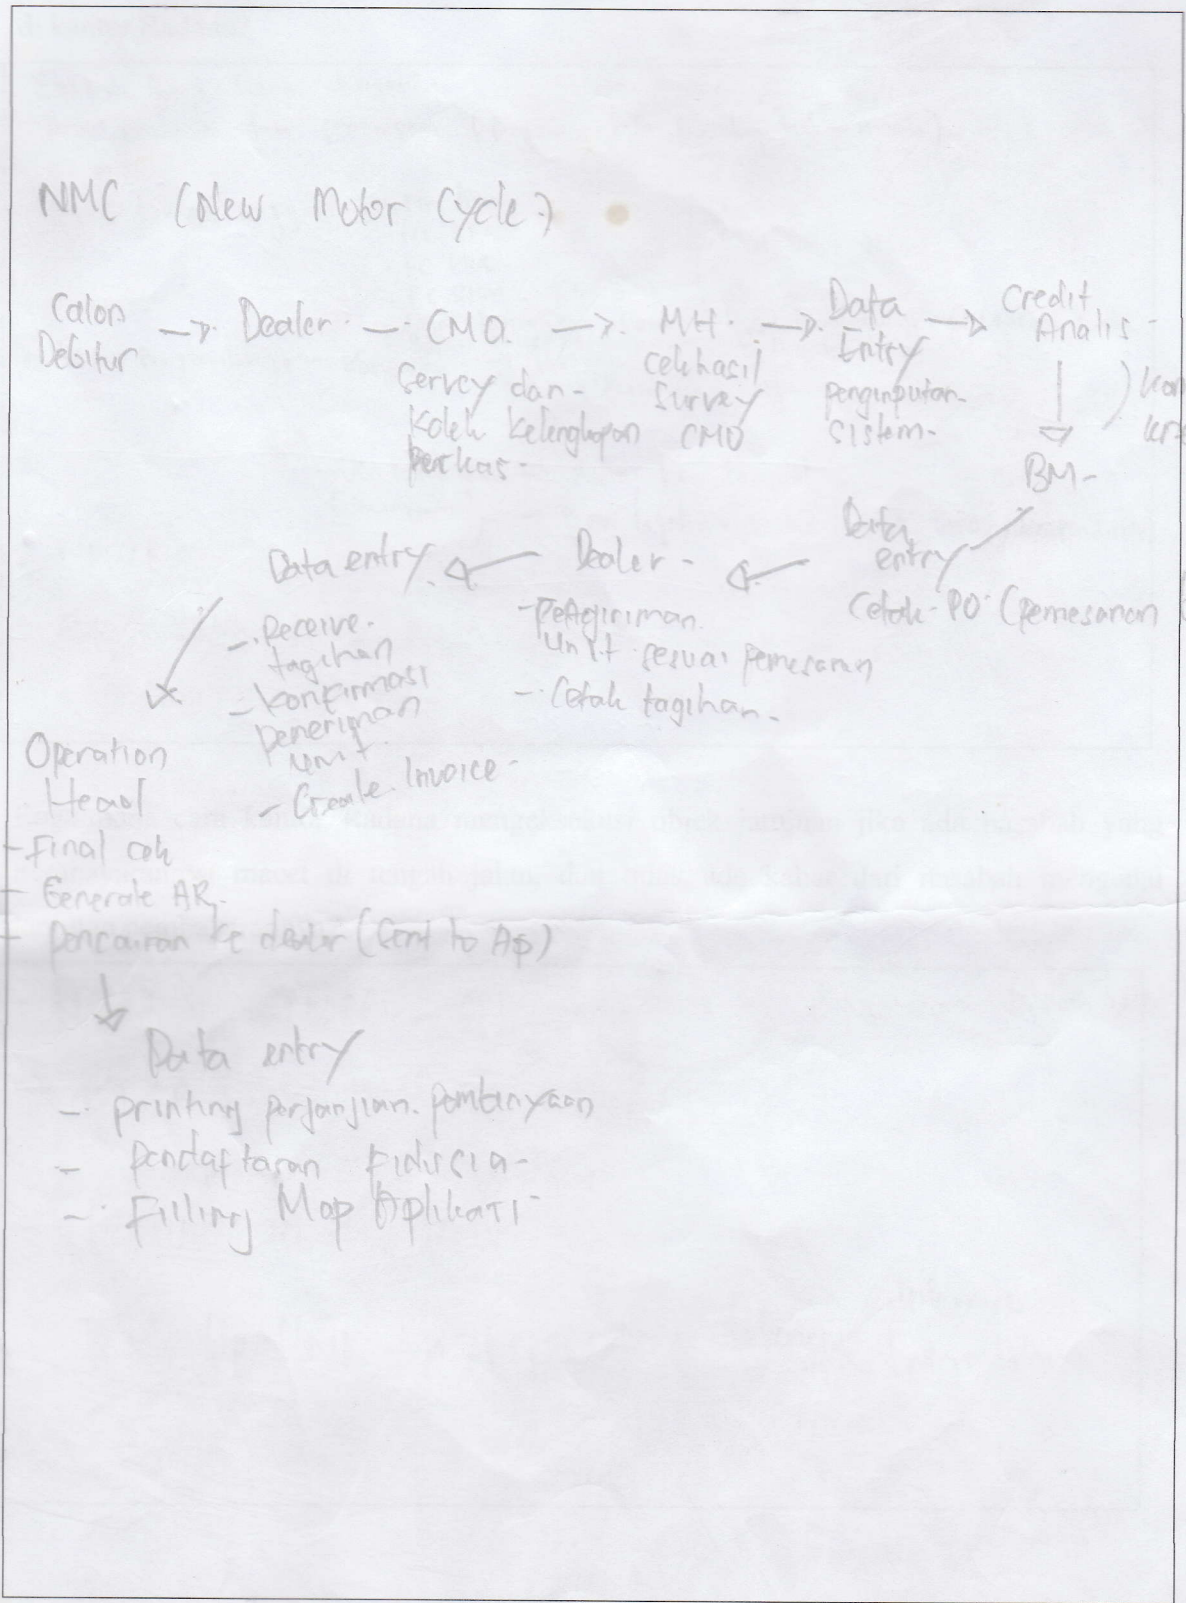 NMC (New Motor Cycle)
Calon Debitur → Dealer - CMO. → MH. → Data Entry → Credit Analis -
Servey dan -
Kolek kelengkapan
berkas -
cek hasil
Survey
CMO
penginputan
sistem -
BM -
Data entry
Cetak PO (pemesanan
Dealer -
- pengiriman
unit sesuai pemesanan
- Cetak tagihan.
Data entry
- Receive
tagihan
- konfirmasi
peneriman
unit
- Create Invoice -
Operation
Head
- Final cek
- Generate AR
- Pencairan ke dealer (Cent to AP)
Data entry
- printing perjanjian pembiayaan
- pendaftaran Fidusia -
- Filling Map Aplikasi